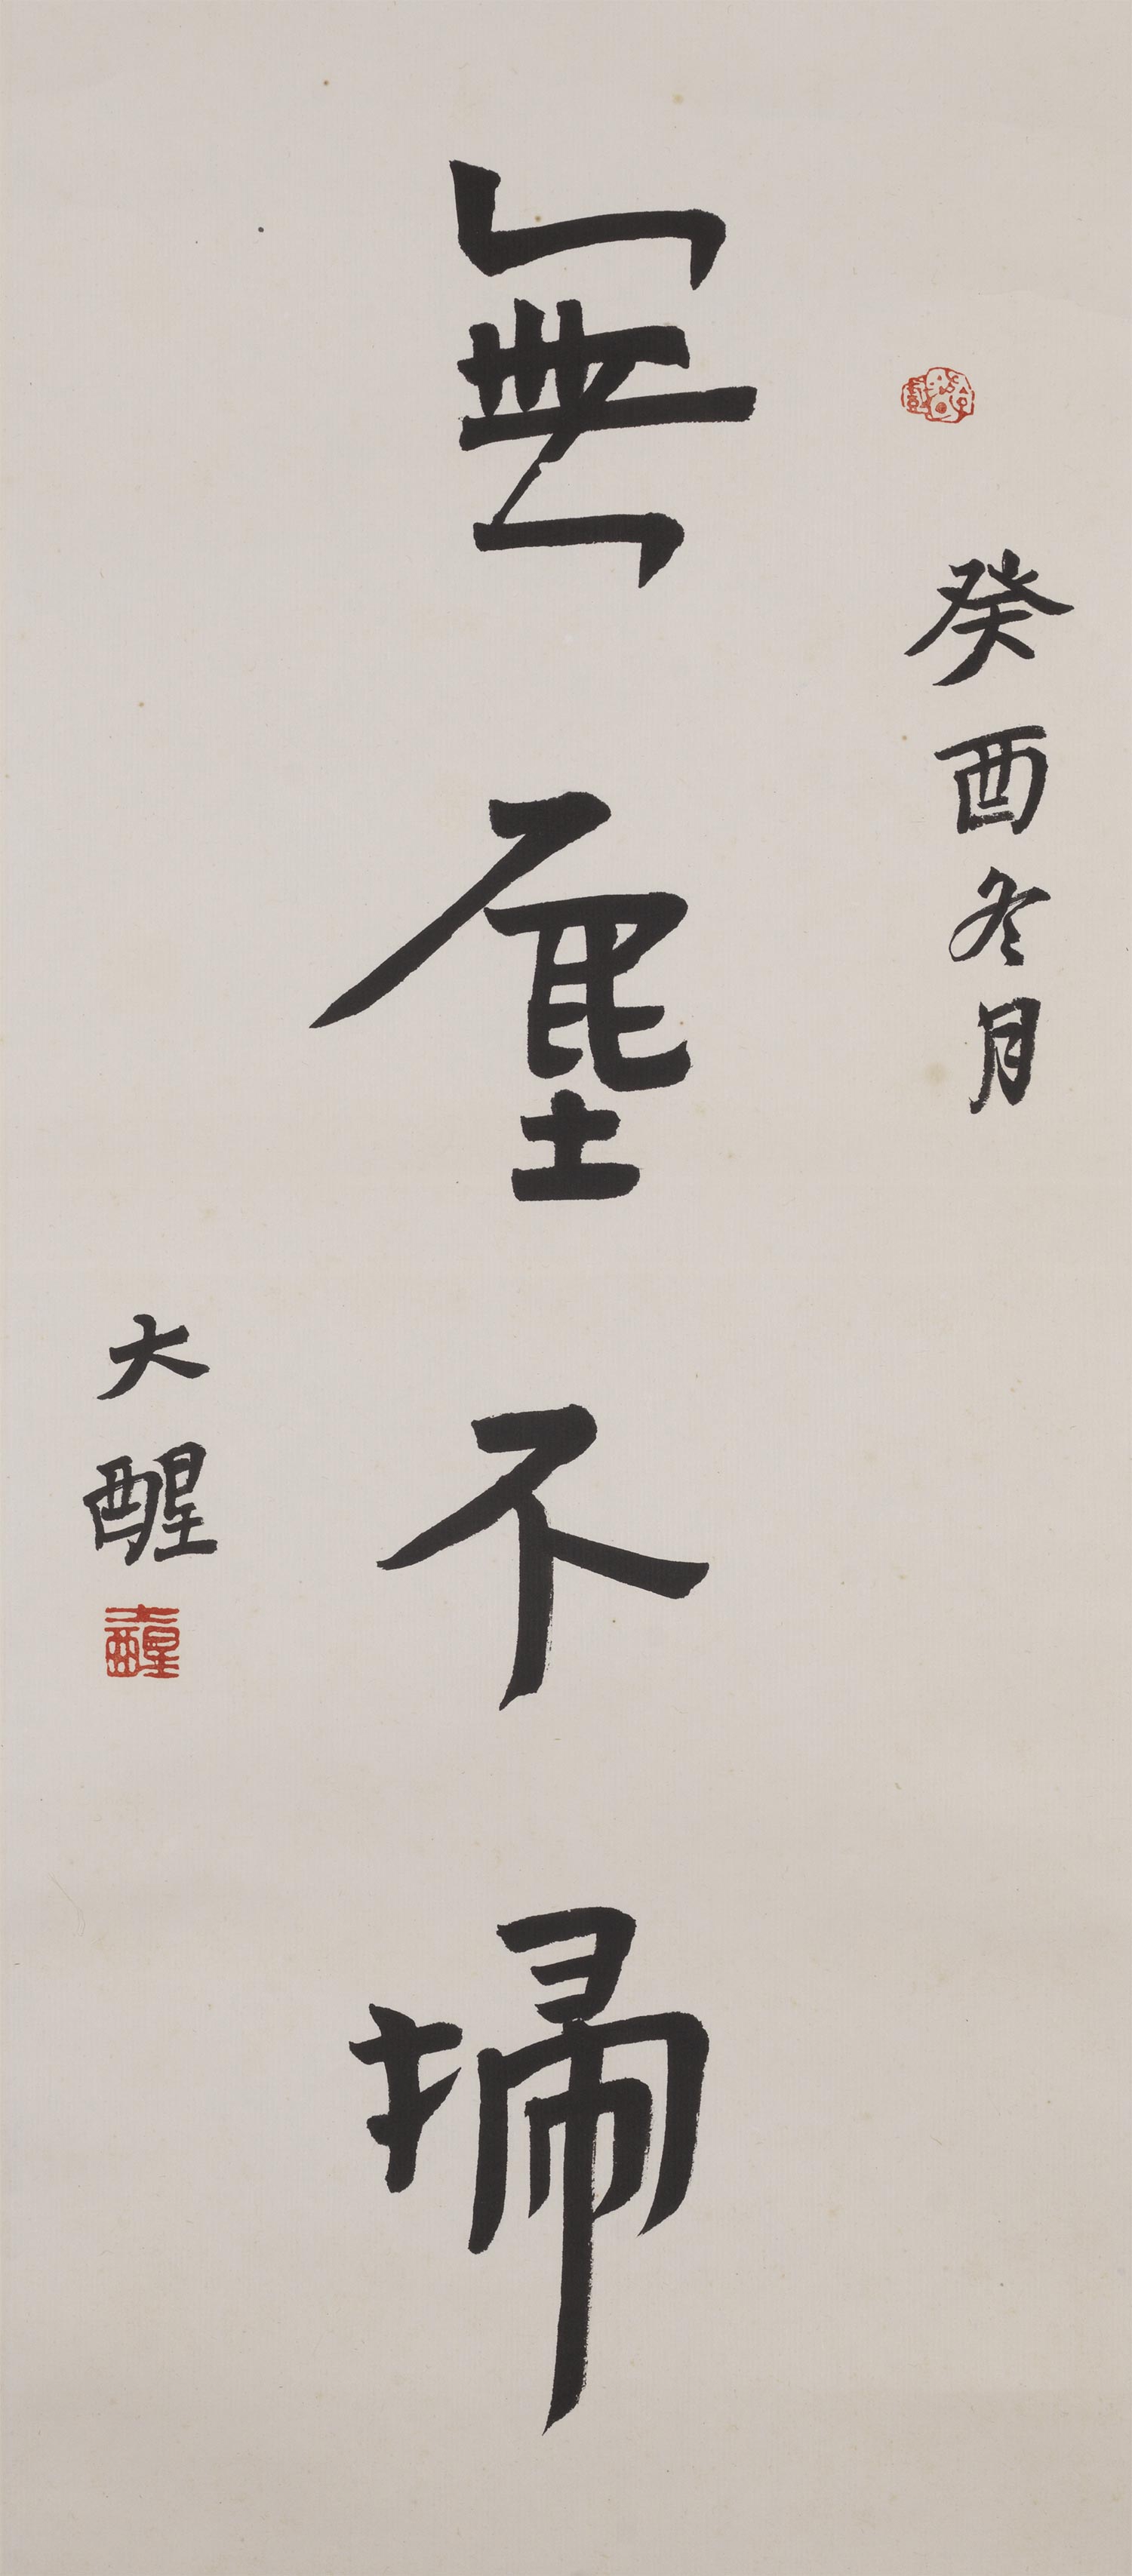 癸酉冬月
無塵不掃
大醒
大醒